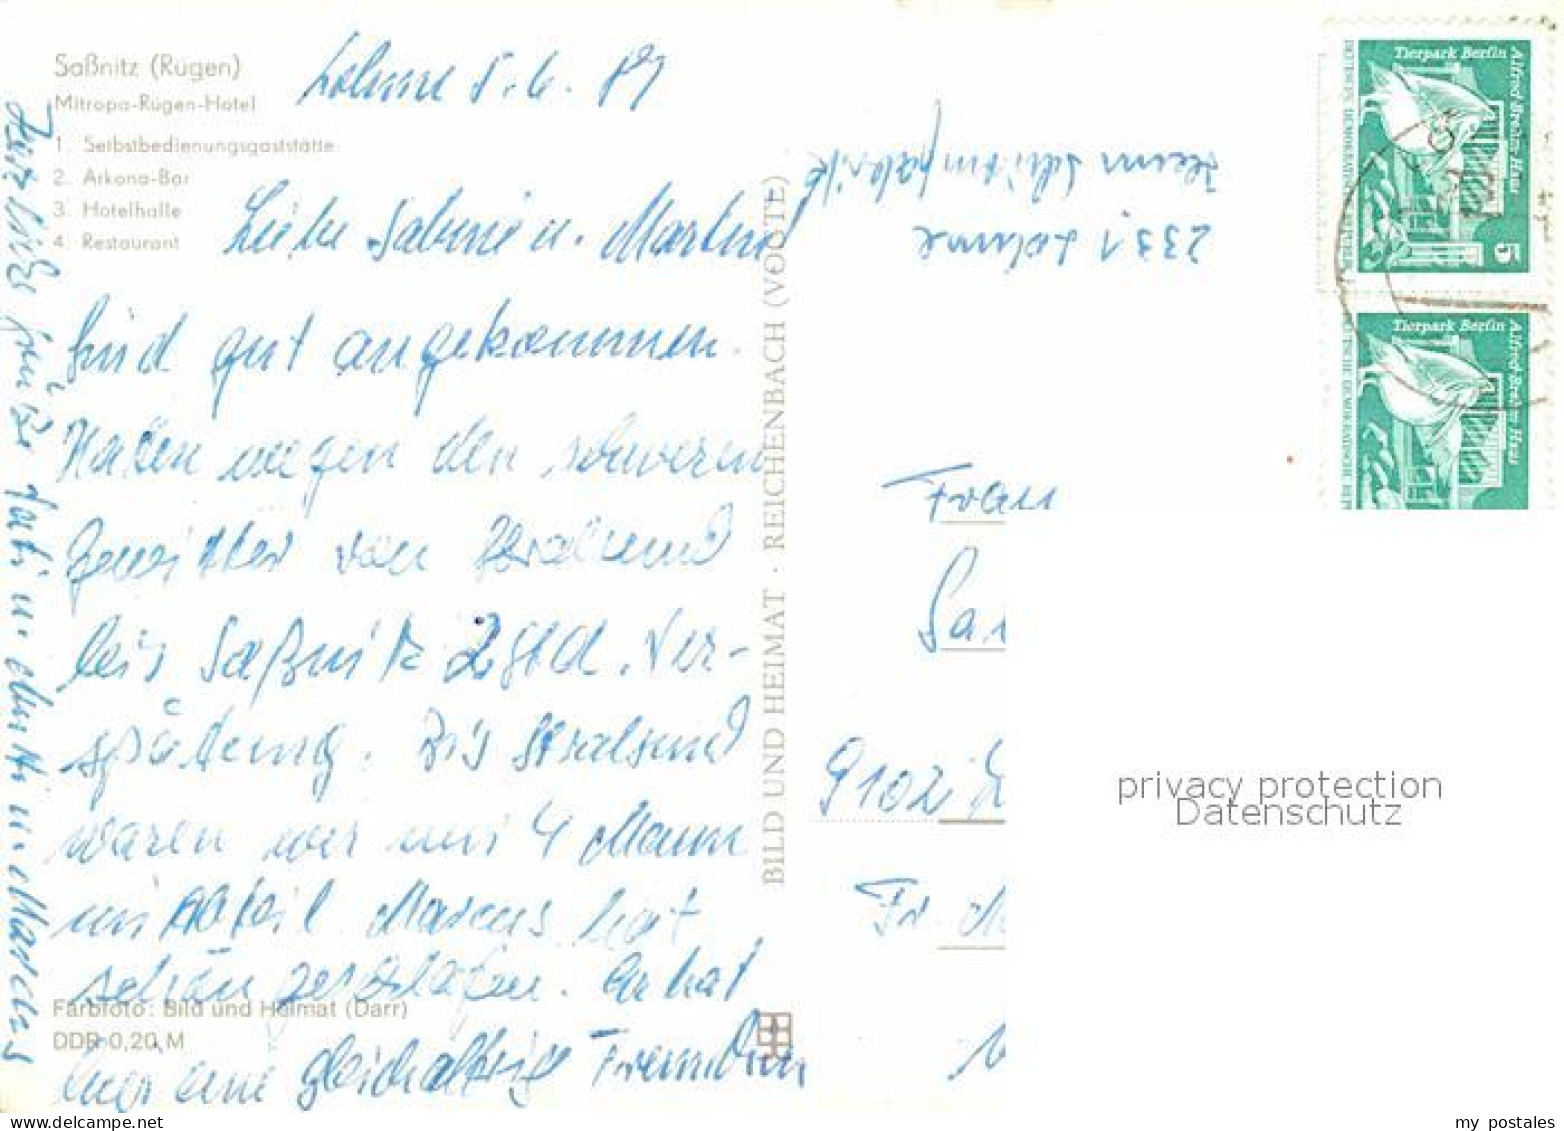 Saßnitz (Rügen)
Mitropa-Rügen-Hotel
1. Selbstbedienungsgaststätte
2. Arkona-Bar
3. Hotelhalle
4. Restaurant
Lohme 5.6.89
Liebe Sabine u. Martin
Sind gut angekommen.
Hatten wegen den schweren
Gewitter von Stralsund
bis Saßnitz 2 Std. Ver-
spätung. Bis Stralsund
waren wir nur 4 Mann
im Abteil. Marcus hat
schön geschlafen. Er hat
hier eine gleichaltrige Freundin
Herzliche Grüße u. Marcus
Farbfoto: Bild und Heimat (Darr)
DDR 0,20 M
BILD UND HEIMAT · REICHENBACH (VOGTL)
2331 Lohme
Tierpark Berlin
Alfred-Brehm-Haus
DEUTSCHE DEMOKRATISCHE REPUBLIK
5
Tierpark Berlin
Alfred-Brehm-Haus
DEUTSCHE DEMOKRATISCHE REP
Frau
9102
Fr.
privacy protection
Datenschutz
my postales